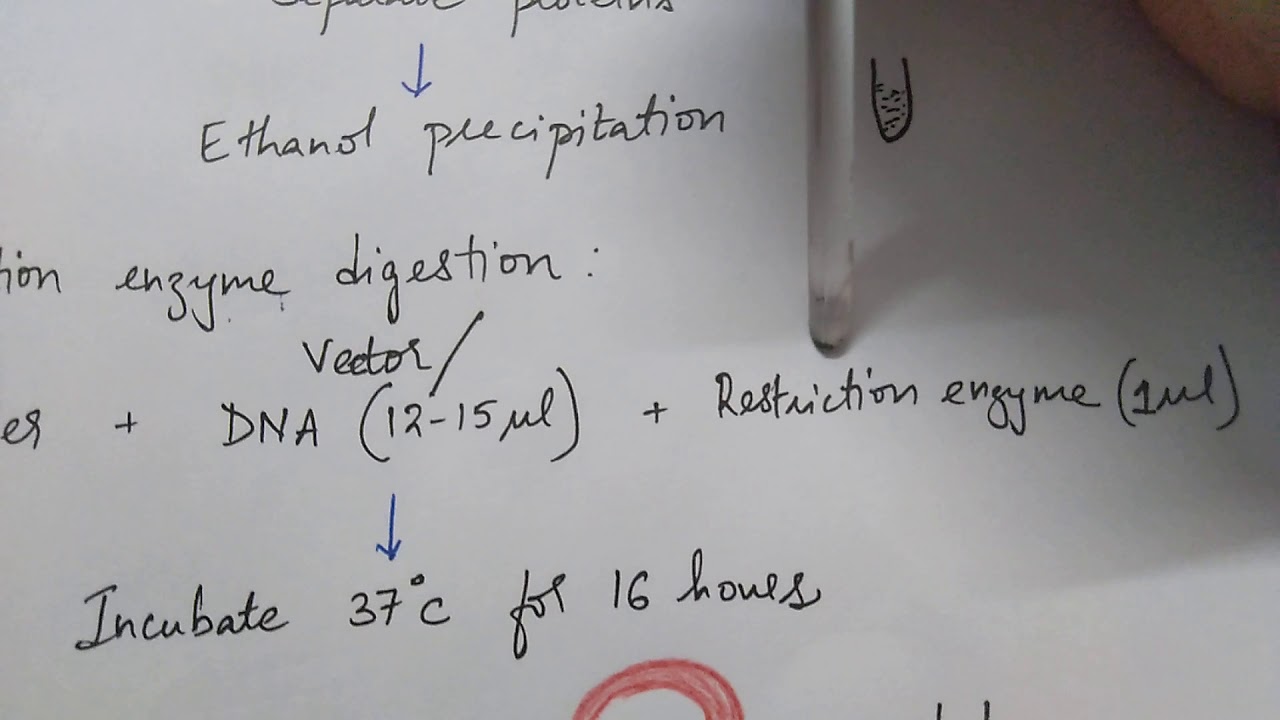 proteins
Ethanol precipitation
tion enzyme digestion :
Vector/
DNA (12-15 μl) + Restriction enzyme (1μl)
Incubate 37°c for 16 hours